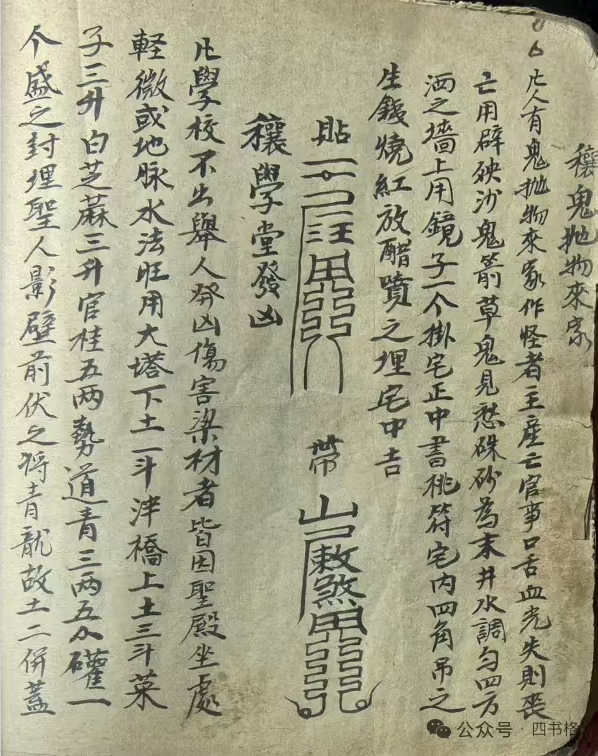 穰鬼抛物來家
凡人有鬼抛物來家作怪者主産亡官事口舌血光失則喪
亡用辟殃沙鬼箭草鬼見愁硃砂為末井水調勻四方
洒之墻上用鏡子一个掛宅正中書桃符宅内四角吊之
生鉄燒紅放醋噴之埋宅中吉
貼
帶
敕煞
穰學堂發凶
凡學校不出舉人發凶傷害梁材者皆因聖殿坐處
輕微或地脉水法旺用大塔下土一斗津橋上土三斗菜
子三升白芝蔴三升官桂五两勢道青三两五分礶一
个盛之封埋聖人影壁前伏之将青龍故土二併蓋
公众号·四书格